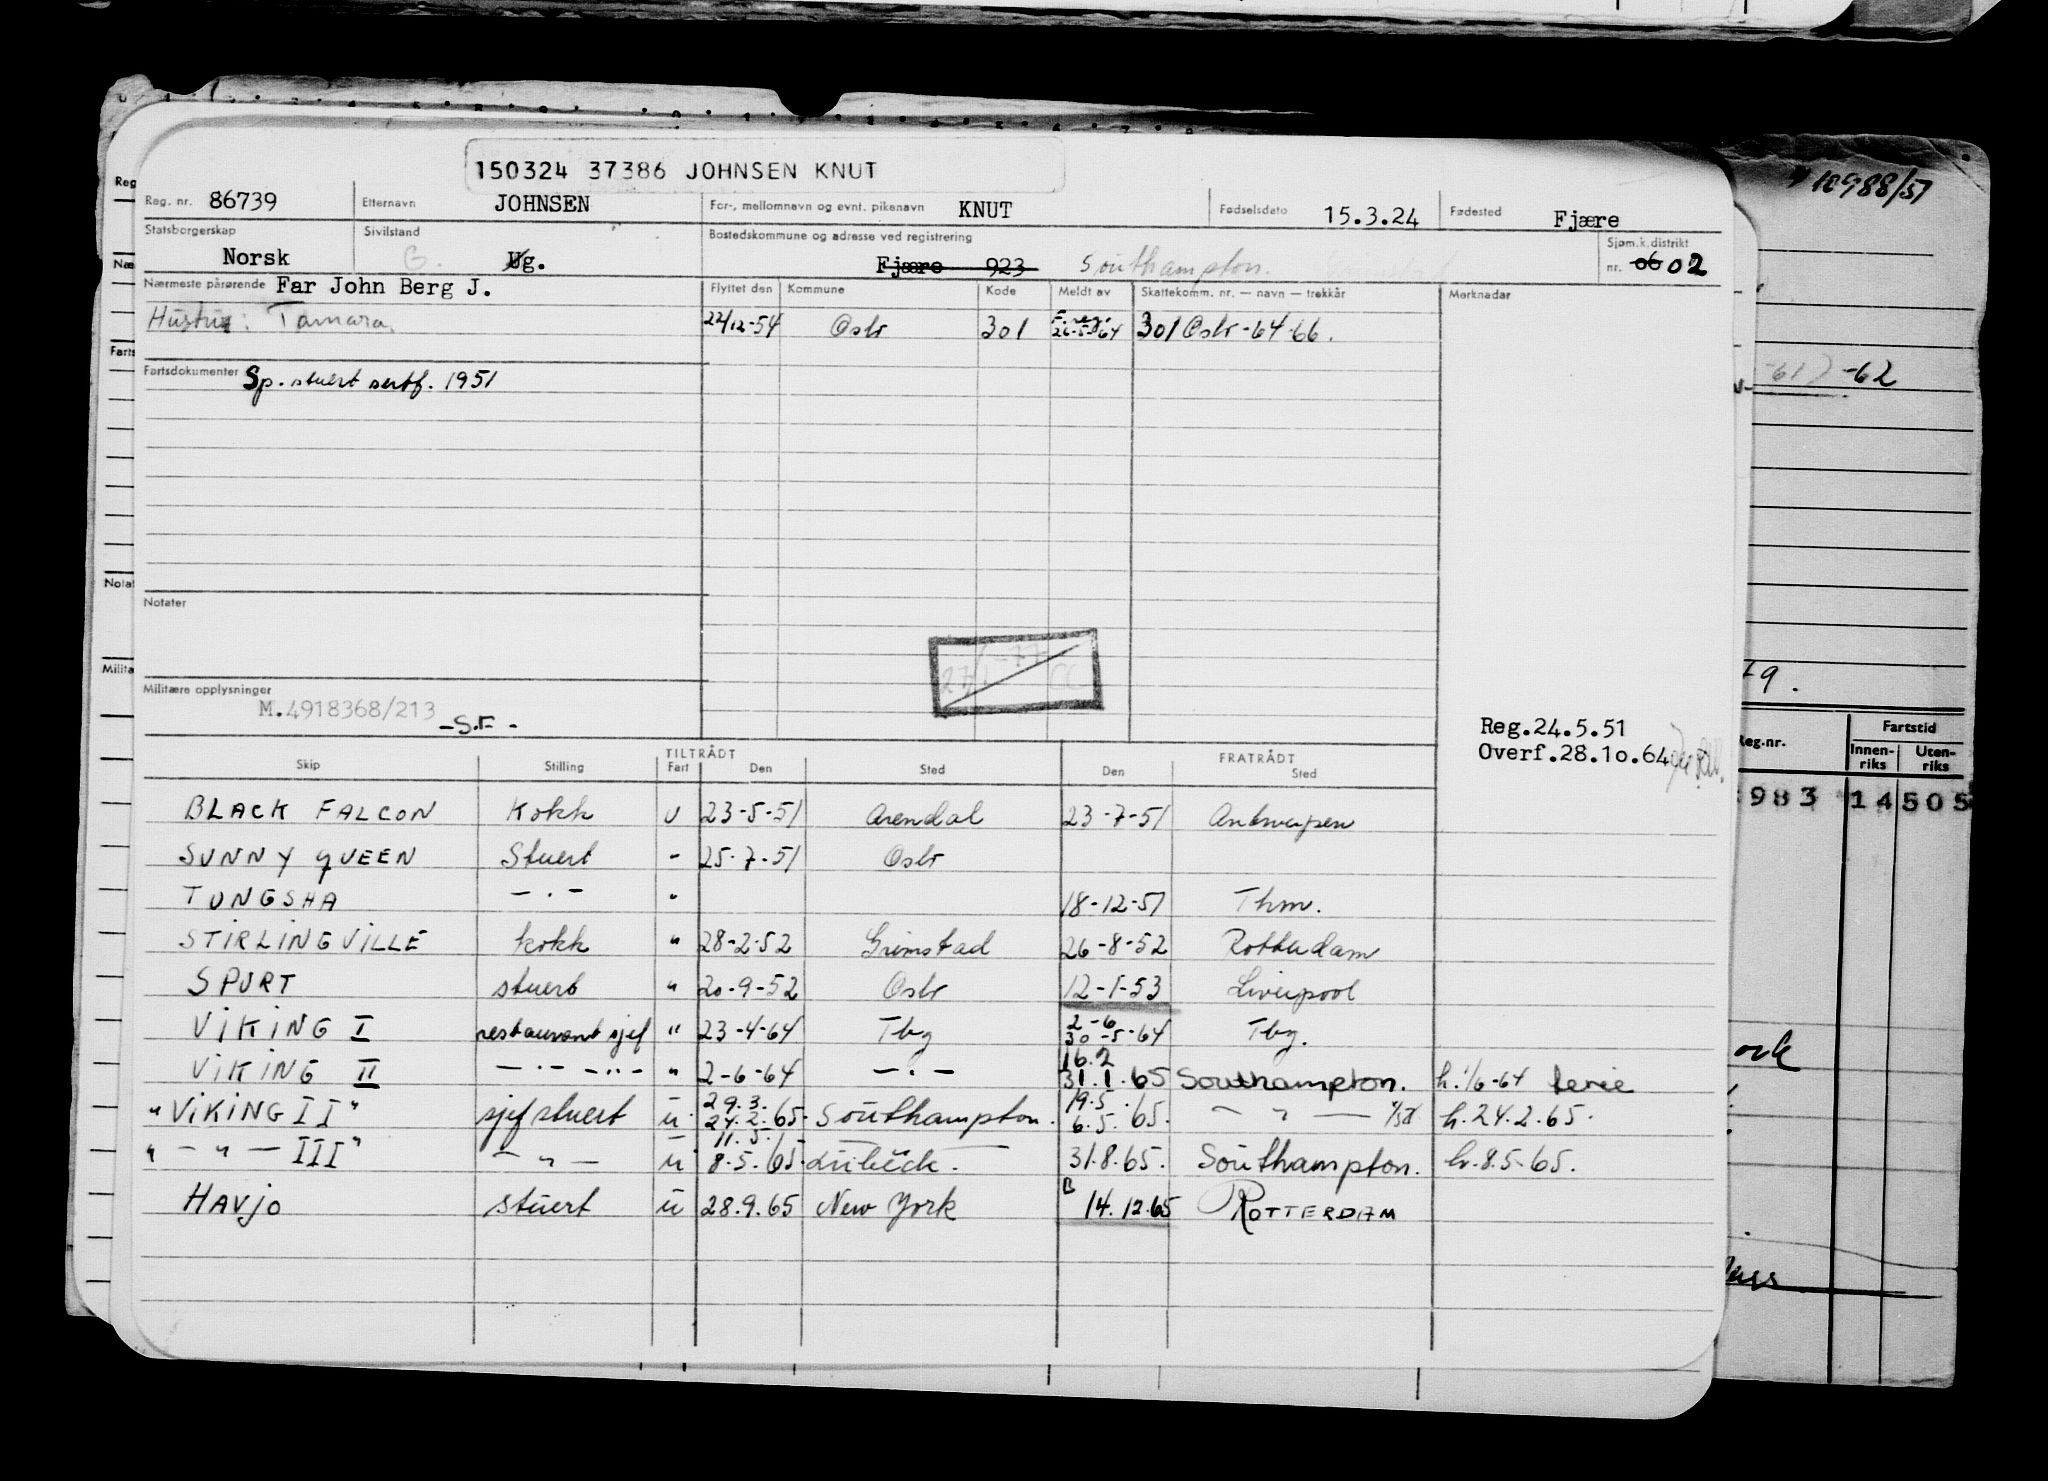 10988/51
150324 37386 JOHNSEN KNUT
Reg. nr. 86739 Etternavn JOHNSEN For-, mellomnavn og evnt. pikenavn KNUT Fødselsdato 15.3.24 Fødested Fjære
Statsborgerskap Norsk Sivilstand G. Ug. Bostedskommune og adresse ved registrering Fjære 923 Southampton. Sjøm.k.distrikt nr. 06 02
Nærmeste pårørende Far John Berg J. Flyttet den Kommune Kode Meldt av Skattekomm. nr. — navn — trekkår Merknader
Hustru: Tamara. 22/12-54 Oslo 301 F.reg. 301 Oslo -64-66.
Fartsdokumenter Sp. stuert sertf. 1951
-62
Notater
Militære opplysninger
M.4918368/213 -S.F-
27/1-77
Reg.24.5.51
Overf.28.10.64
TILTRÅDT FRATRÅDT
Skip Stilling Fart Den Sted Den Sted
BLACK FALCON Kokk U 23-5-51 Arendal 23-7-51 Antwerpen
SUNNY QUEEN Stuert - 25-7-51 Oslo
TUNGSHA — . — " 18-12-51 Thm.
STIRLINGVILLE kokk " 28-2-52 Grimstad 26-8-52 Rotterdam
SPURT stuert " 20-9-52 Oslo 12-1-53 Liverpool
VIKING I restaurant sjef " 23-4-64 Tbg 2-6 30-5-64 Tbg.
VIKING II — . — - .. - " 2-6-64 — . — 16.2 31.1.65 Southampton. h. 1/6-64 ferie
"VIKING II" sjef stuert u 29.3. 24.2.65. Southampton. 19.5. 6.5.65. — " — h.24.2.65.
" — " — III" — " — u 11.5. 8.5.65. Lübeck. 31.8.65. Southampton. h.8.5.65.
HAVJO stuert u 28.9.65 New York B 14.12.65 ROTTERDAM
Reg.nr. Fartstid
Innen-riks Uten-riks
983 14 505